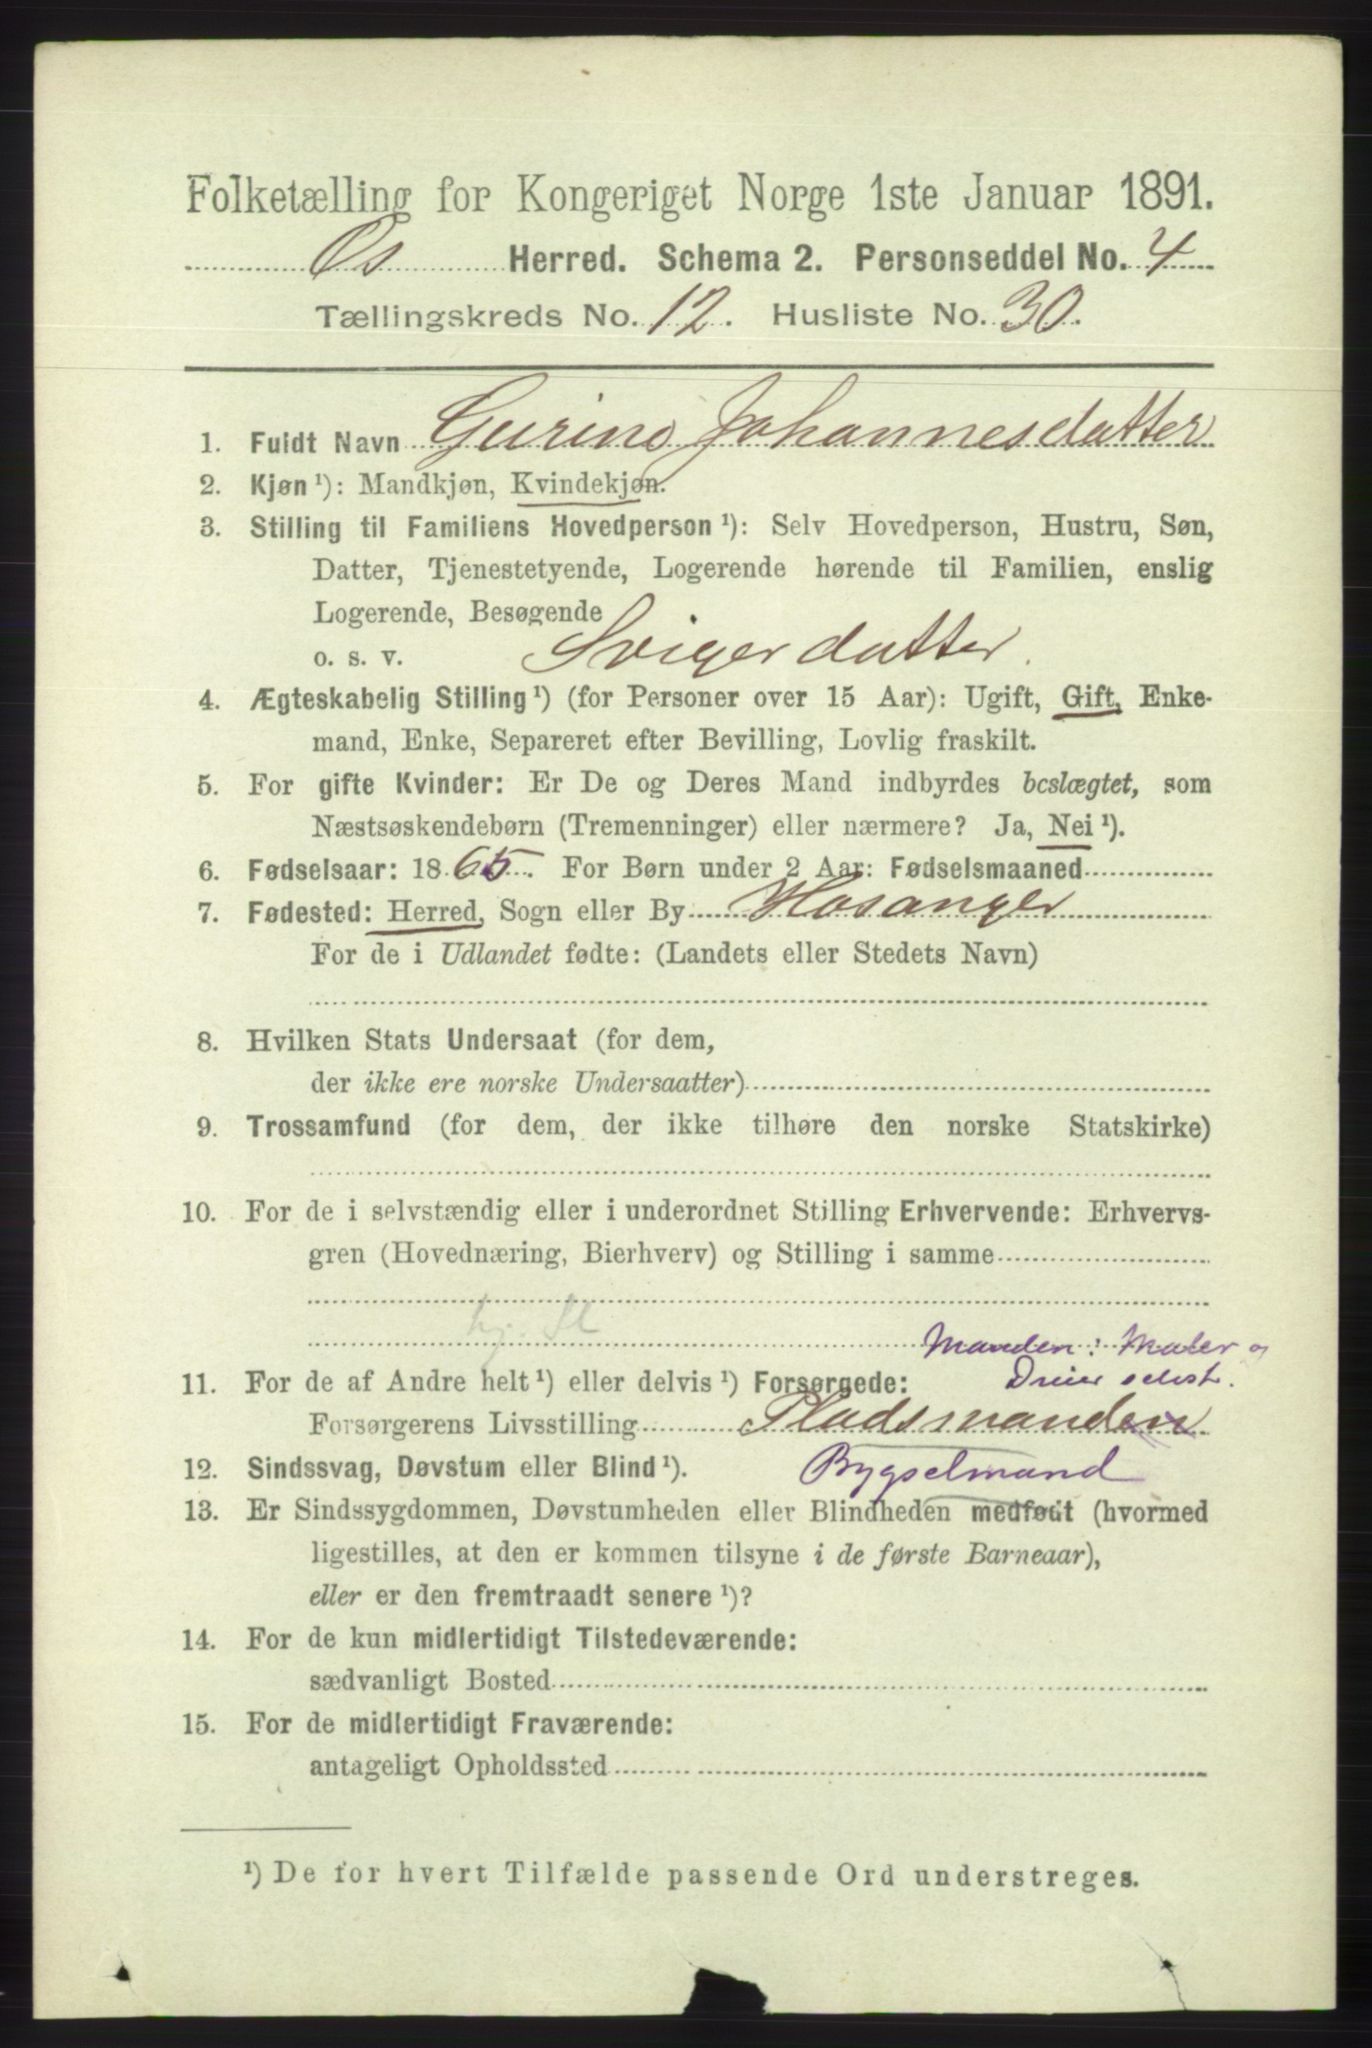 Folketælling for Kongeriget Norge 1ste Januar 1891.
Os Herred. Schema 2. Personseddel No. 4
Tællingskreds No. 12. Husliste No. 30.
1. Fuldt Navn Gurina Johannesdatter
2. Kjøn ¹): Mandkjøn, Kvindekjøn.
3. Stilling til Familiens Hovedperson ¹): Selv Hovedperson, Hustru, Søn,
Datter, Tjenestetyende, Logerende hørende til Familien, enslig
Logerende, Besøgende
o. s. v. Svigerdatter.
4. Ægteskabelig Stilling ¹) (for Personer over 15 Aar): Ugift, Gift, Enke-
mand, Enke, Separeret efter Bevilling, Lovlig fraskilt.
5. For gifte Kvinder: Er De og Deres Mand indbyrdes beslægtet, som
Næstsøskendebørn (Tremenninger) eller nærmere? Ja, Nei ¹).
6. Fødselsaar: 1865. For Børn under 2 Aar: Fødselsmaaned
7. Fødested: Herred, Sogn eller By Hosanger
For de i Udlandet fødte: (Landets eller Stedets Navn)
8. Hvilken Stats Undersaat (for dem,
der ikke ere norske Undersaatter)
9. Trossamfund (for dem, der ikke tilhøre den norske Statskirke)
10. For de i selvstændig eller i underordnet Stilling Erhvervende: Erhvervs-
gren (Hovednæring, Bierhverv) og Stilling i samme
Manden: Maler og
11. For de af Andre helt ¹) eller delvis ¹) Forsørgede: Dreier selvst.
Forsørgerens Livsstilling Pladsmanden
12. Sindssvag, Døvstum eller Blind ¹). Bygselmand
13. Er Sindssygdommen, Døvstumheden eller Blindheden medfødt (hvormed
ligestilles, at den er kommen tilsyne i de første Barneaar),
eller er den fremtraadt senere ¹)?
14. For de kun midlertidigt Tilstedeværende:
sædvanligt Bosted
15. For de midlertidigt Fraværende:
antageligt Opholdssted
¹) De for hvert Tilfælde passende Ord understreges.